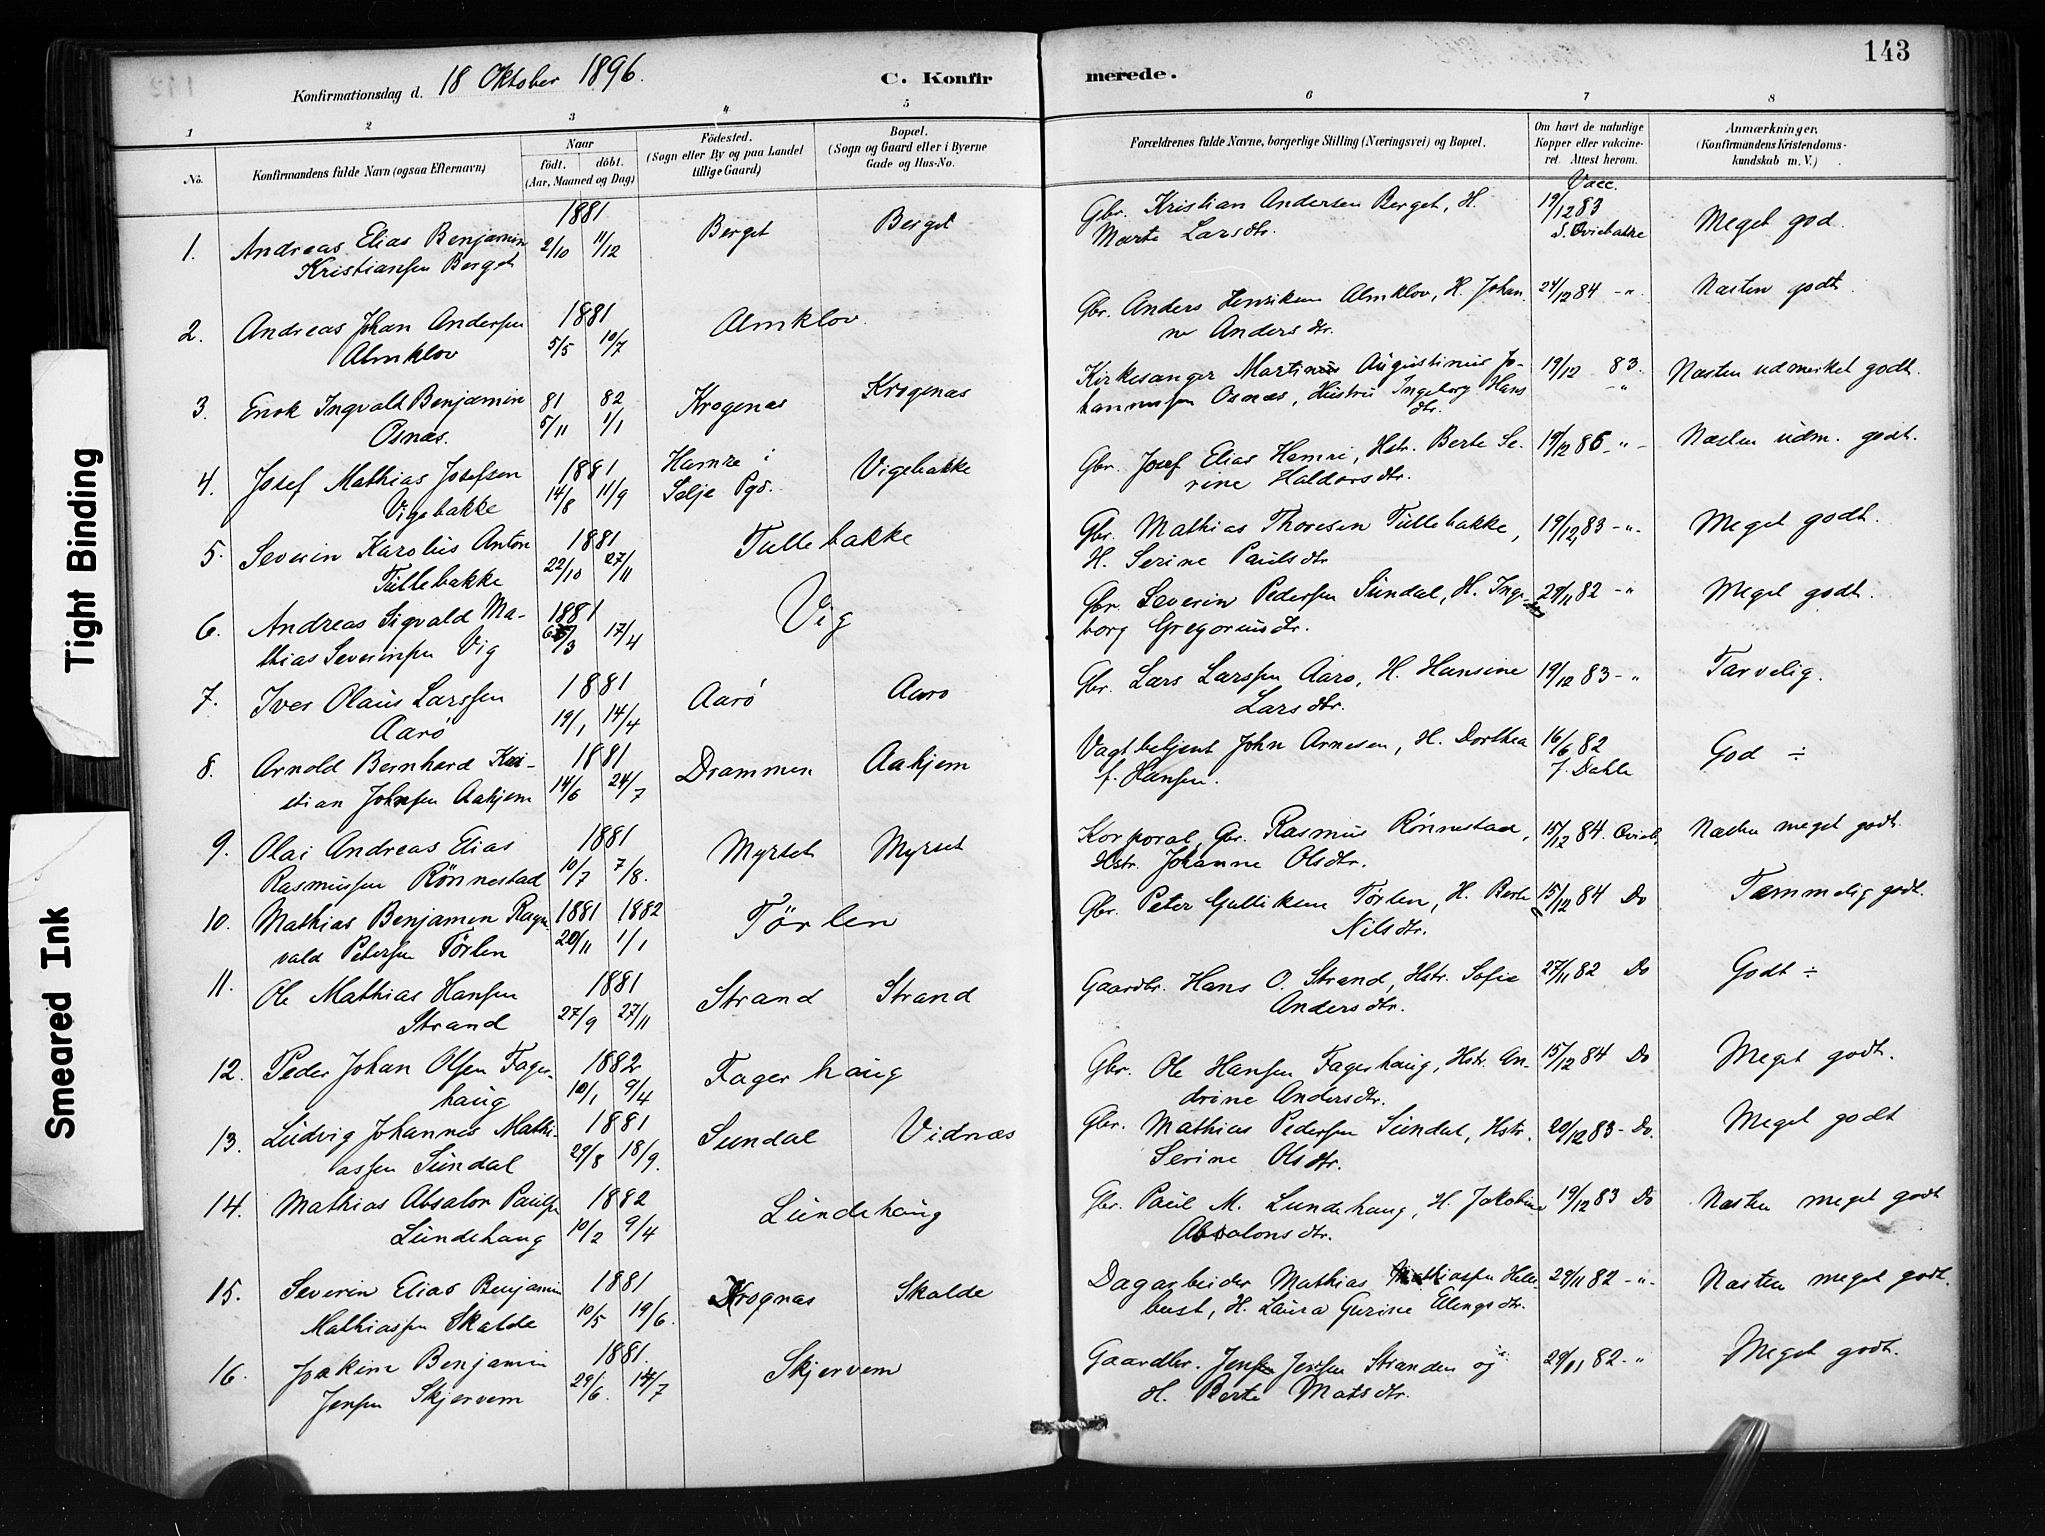 143
Konfirmationsdag d. 18 Oktober 1896.
C. Konfirmerede.
1 2 3 4 5 6 7 8
No.
Konfirmandens fulde Navn (ogsaa Efternavn)
Naar
født. døbt.
(Aar, Maaned og Dag)
Födested.
(Sogn eller By og paa Landet
tillige Gaard)
Bopæl.
(Sogn og Gaard eller i Byerne
Gade og Hus-No.
Forældrenes fulde Navne, borgerlige Stilling (Næringsvei) og Bopæl.
Om havt de naturlige
Kopper eller vakcine-
ret. Attest herom.
Anmærkninger.
(Konfirmandens Kristendoms-
kundskab m. V.)
Vacc.
1. Andreas Elias Benjamin
Kristiansen Berget
1881
2/10 11/12
Berget
Berget
Gbr. Kristian Andersen Berget, H.
Marte Larsdtr.
19/12 83
Meget god.
2. Andreas Johan Andersen
Almklov
1881
5/5 10/7
Almklov.
Gbr. Anders Henriksen Almklov, H. Johan
ne Andersdtr.
24/12 84 -"
Næsten godt.
3. Enok Ingvald Benjamin
Osnæs.
81 82
5/11 1/1
Krogenæs
Krogenæs
Kirkesanger Martinus Augustinus Jo-
hannesen Osnæs, Hustru Ingeborg Hans
dtr.
19/12 83.
-"
Næsten udmerket godt.
4. Josef Mathias Josefsen
Vigebakke
1881
14/8 11/9
Hamre i
Selje Pgd.
Vigebakke
Gbr. Josef Elias Hamre, Hstr. Berte Se-
rine Haldorsdtr.
19/12 85 -"-
Næsten udm. godt.
5. Severin Karolus Anton
Tullebakke
1881
22/10 27/11
Tullebakke
Gbr. Mathias Thoresen Tullebakke,
H. Serine Paulsdtr
19/12 83 -"-
Meget godt.
6. Andreas Sigvald Ma-
thias Severinsen Vig
1881
/3 17/4
Vig
Gbr. Severin Pedersen Sundal, H. Inge-
borg Gregoriusdtr.
29/11 82 -"
Meget godt.
7. Iver Olaus Larssen
Aarø
1881
19/1 14/4
Aarø
Aaro
Gbr. Lars Larssen Aaro, H. Hansine
Larsdtr.
19/12 83 -"
Tarvelig.
8. Arnold Bernhard Kri-
stian Johnsen Aahjem
1881
14/6 24/7
Drammen
Aahjem
Vagtbetjent John Arnesen, H. Dorthea
f. Hansen.
16/6 82
J. Dahle
God ÷
9. Olai Andreas Elias
Rasmussen Rönnestad
1881
10/7 7/8.
Myrset
Myrset
Korporal, Gbr. Rasmus Rönnestad,
Hstr. Johanne Olsdtr.
15/12 84.
Næsten meget godt.
10. Mathias Benjamin Ragn
vald Petersen Tørlen
1881 1882
20/11 1/1
Tørlen
Gbr. Peter Gulliksen Tørlen, H. Berte
Nilsdtr.
15/12 84 Do
Tæmmelig godt.
11. Ole Mathias Hansen
Strand
1881
27/9 27/11
Strand
Strand
Gaardbr. Hans O. Strand, Hstr. Sofie
Andersdtr.
27/11 82 Do
Godt ÷
12. Peder Johan Olsen Fager-
haug
1882
10/1 9/4
Fagerhaug
Gbr. Ole Hansen Fagerhaug, Hstr. An-
drine Andersdtr.
15/12 84 Do
Meget godt.
13. Ludvig Johannes Mathi-
assen Sundal
1881
29/8 18/9.
Sundal
Vidnæs
Gbr. Mathias Pedersen Sundal, Hstr.
Serine Olsdtr.
20/12 83 - Do.
Meget godt
14. Mathias Absalon Paulsen
Lundehaug
1882
10/2 9/4
Lundehaug
Gbr. Paul M. Lundehaug, H. Jakobine
Absalonsdtr.
19/12 83 Do
Næsten meget godt
15. Severin Elias Benjamin
Mathiassen Skalde
1881
10/5 19/6.
Krognæs
Skalde
Dagarbeider Mathias Mathiassen Helle
bust, H. Laura Gurine Ellingsdtr.
29/11 82 -"-
Næsten meget godt.
16. Joakim Benjamin
Jensen Skjervem
1881.
29/6. 14/7
Skjervem
Gaardbr. Jens Jensen Stranden og
H. Berte Matsdtr.
29/11 82 -"
Meget godt.
Tight Binding
Smeared Ink